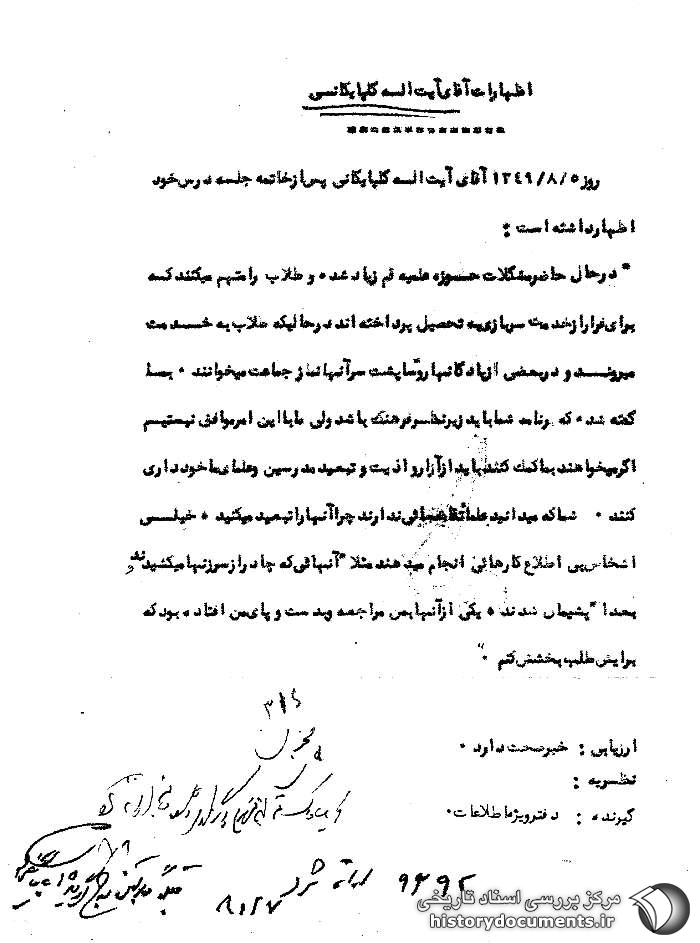 اظهارات آقای آیت اله گلپایگانی
روز ۱۳۴۹/۸/۵ آقای آیت اله گلپایگانی پس از خاتمه جلسه درس خود
اظهار داشته است :
" در حال حاضر مشکلات حوزه علمیه قم زیاد شده و طلاب را متهم میکنند که
برای فرار از خدمت سربازی به تحصیل پرداخته اند در حالیکه طلاب به خدمت
میروند و در بعضی از پادگانها رؤسا پشت سر آنها نماز جماعت میخوانند ۰ بما
گفته شده که برنامه شما باید زیر نظر فرهنگ باشد ولی ما با این امر موافق نیستیم
اگر میخواهند بما کمک کنند باید از آزار و اذیت و تبعید مدرسین و علمای ما خودداری
کنند ۰ شما که میدانید علما گناهی ندارند چرا آنها را تبعید میکنید ۰ خیلی
اشخاص بی اطلاع کارهائی انجام میدهند مثلا" آنهائی که چادر از سر زنها میکشیدند
بعدا" پشیمان شدند ۰ یکی از آنها بمن مراجعه و بدست و پای من افتاده بود که
برایش طلب بخشش کنم ۰"
۳۱۶
ارزیابی : خبر صحت دارد ۰
نظریه :
گیرنده : دفتر ویژه اطلاعات۰
۹۶۹۲
۸،۲۷
مرکز بررسی اسناد تاریخی
historydocuments.ir